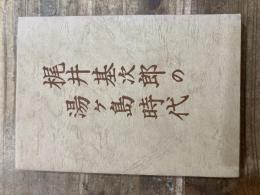 梶井基次郎の
湯ヶ島時代